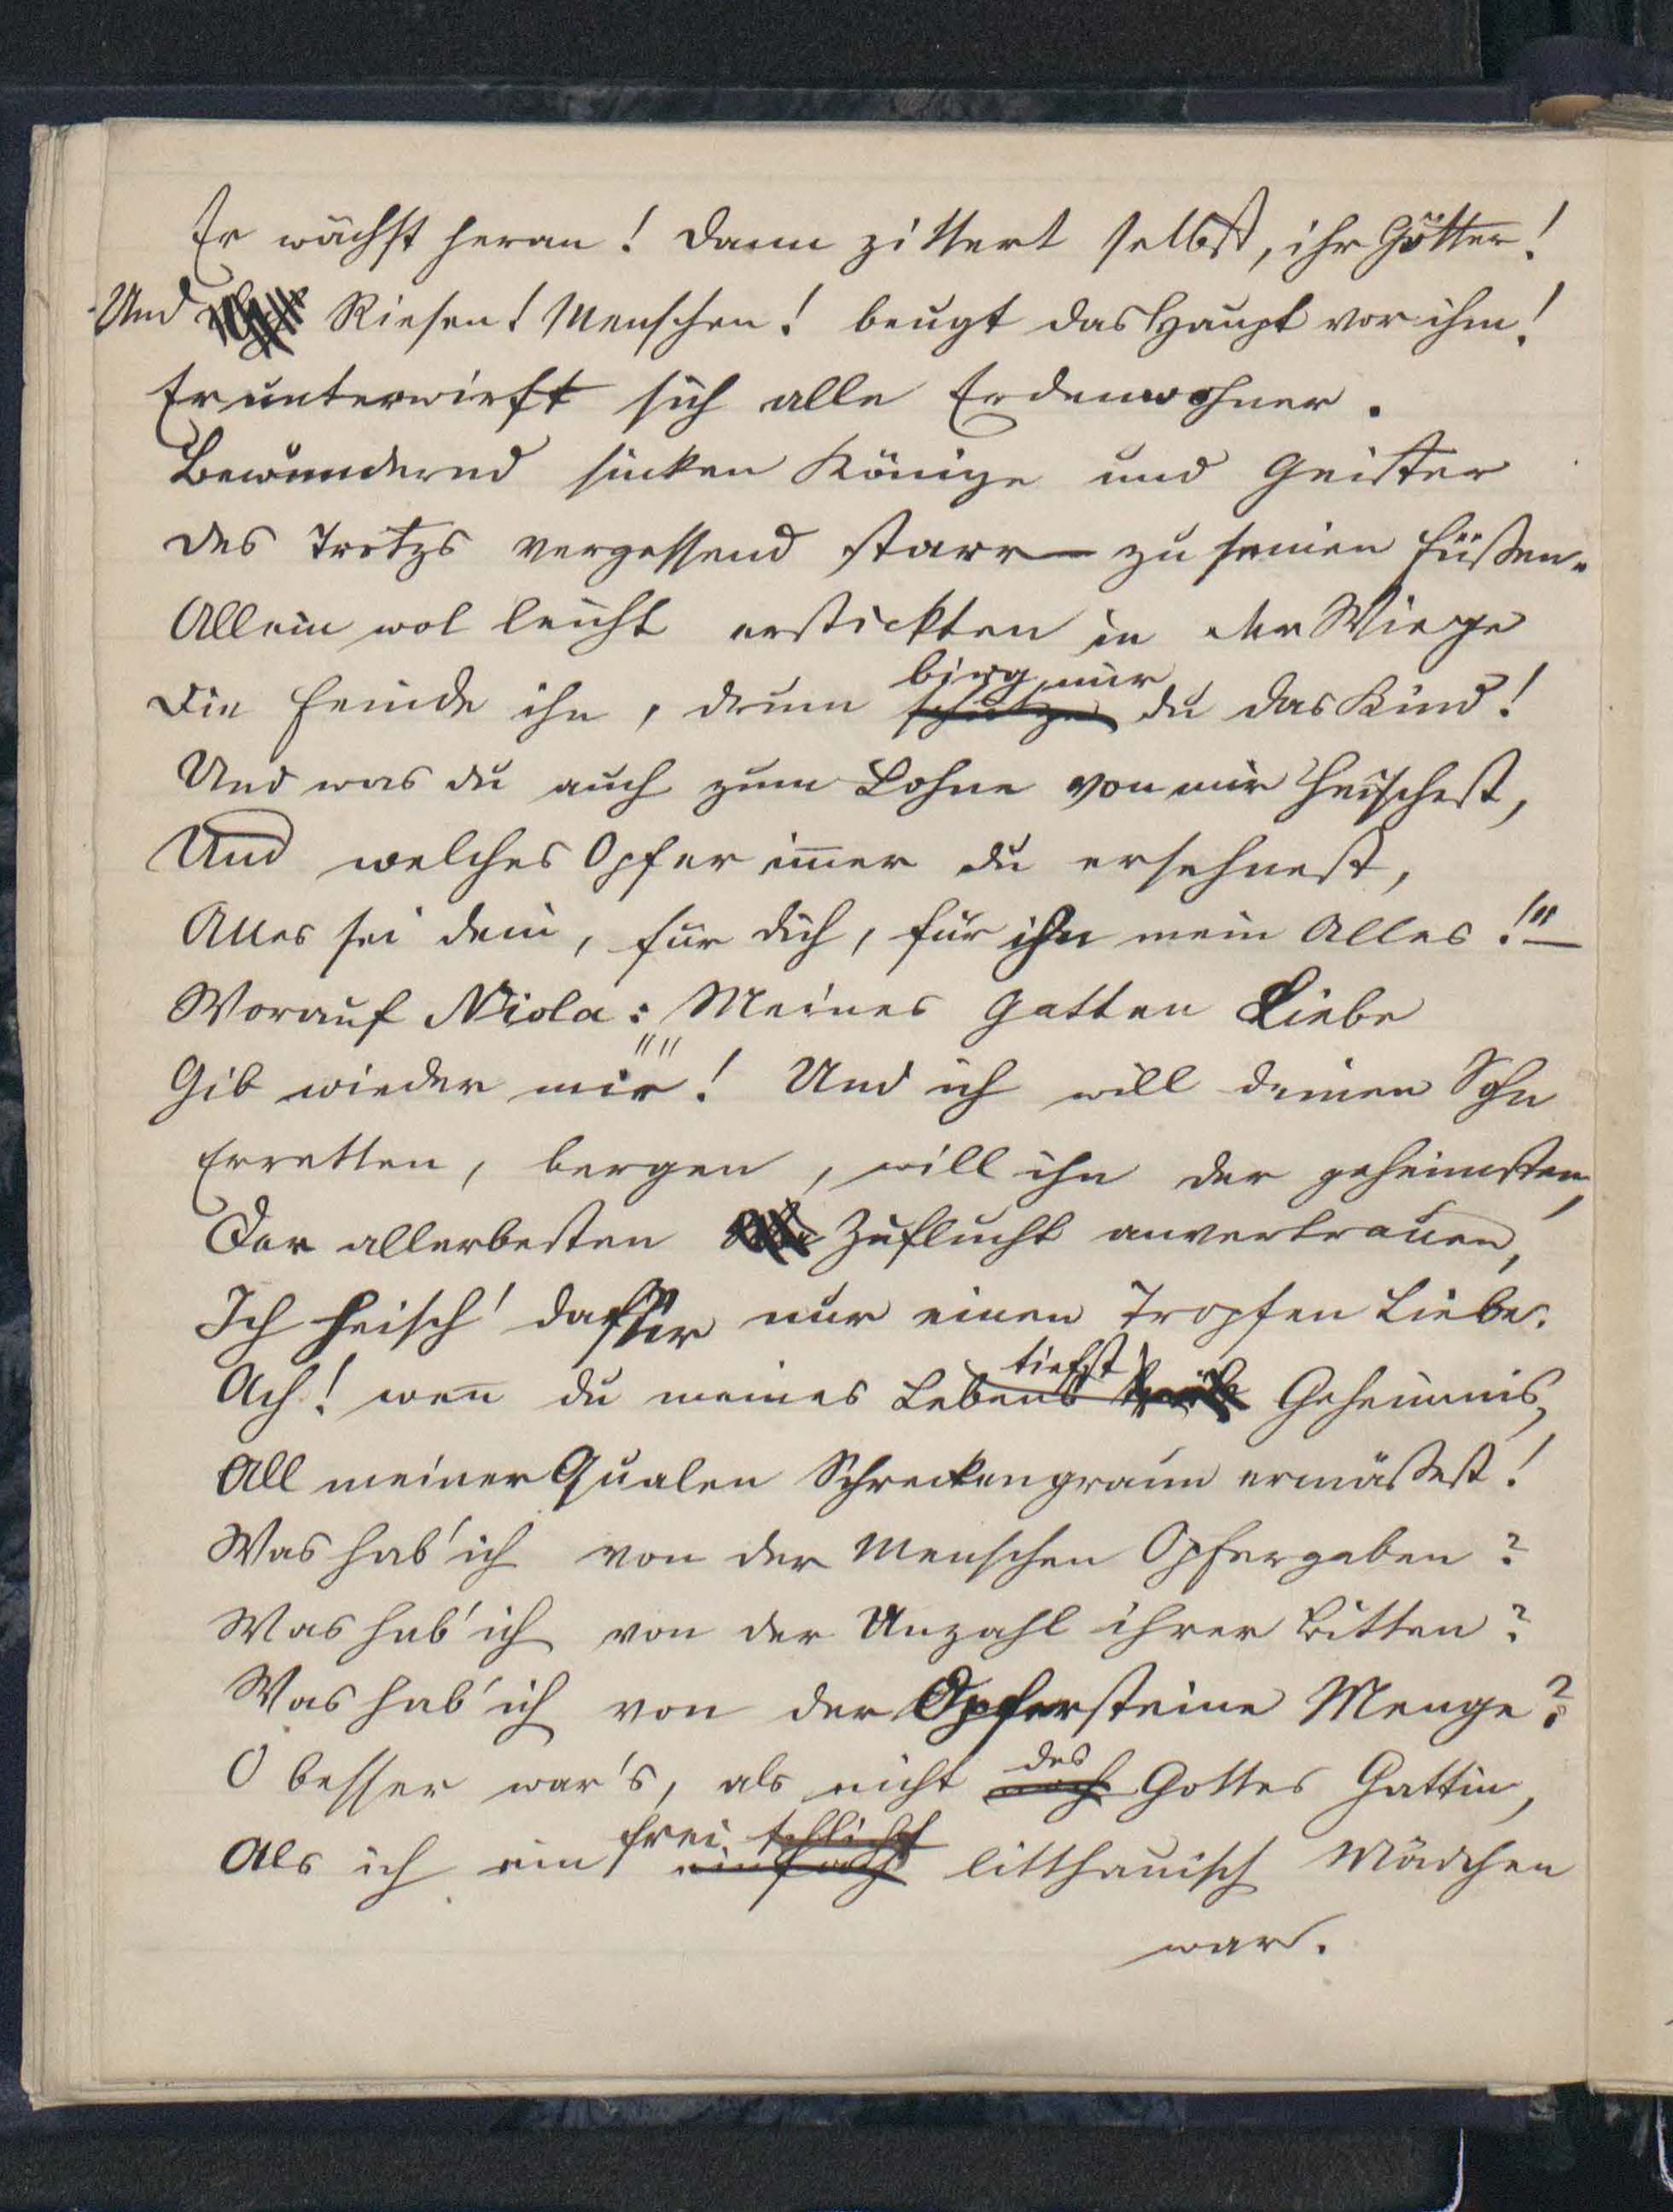 Er wächst heran! Dann zittert selbst, ihr Götter!
Und Riesen! Menschen! beugt das Haupt vor ihm!
Er unterwirft sich alle Erdenwohner.
Bewundernd sinken Könige und Geister
Des Trotzs vergessend starr — zu seinen Füßen.
Allein wol leicht erstickten in der Wiege
birg nur
Die Feinde ihn, drum schütze du das Kind!
Und was du auch zum Lohne von mir heischest,
Und welches Opfer im̅er du ersehnest,
Alles sei dein, für dich, für ihn mein Alles!"—
Worauf Niola: "Meines Gatten Liebe
Gib wieder mir! Und ich will deinen Sohn
Erretten, bergen, will ihn der geheimsten,
Der allerbesten Zuflucht anvertrauen,
Ich heisch' dafür nur einen Tropfen Liebe.
tiefst
Ach! wen̅ du meines Lebens Geheimnis,
All meiner Qualen Schreckengraun ermäßest!
Was hab' ich von der Menschen Opfergaben?
Was hab' ich von der Unzahl ihrer Bitten?
Was hab' ich von der Opfersteine Menge?
des
O besser war's, als nicht noch Gottes Gattin,
frei schlicht
Als ich ein einfach litthauisch Mädchen
war.